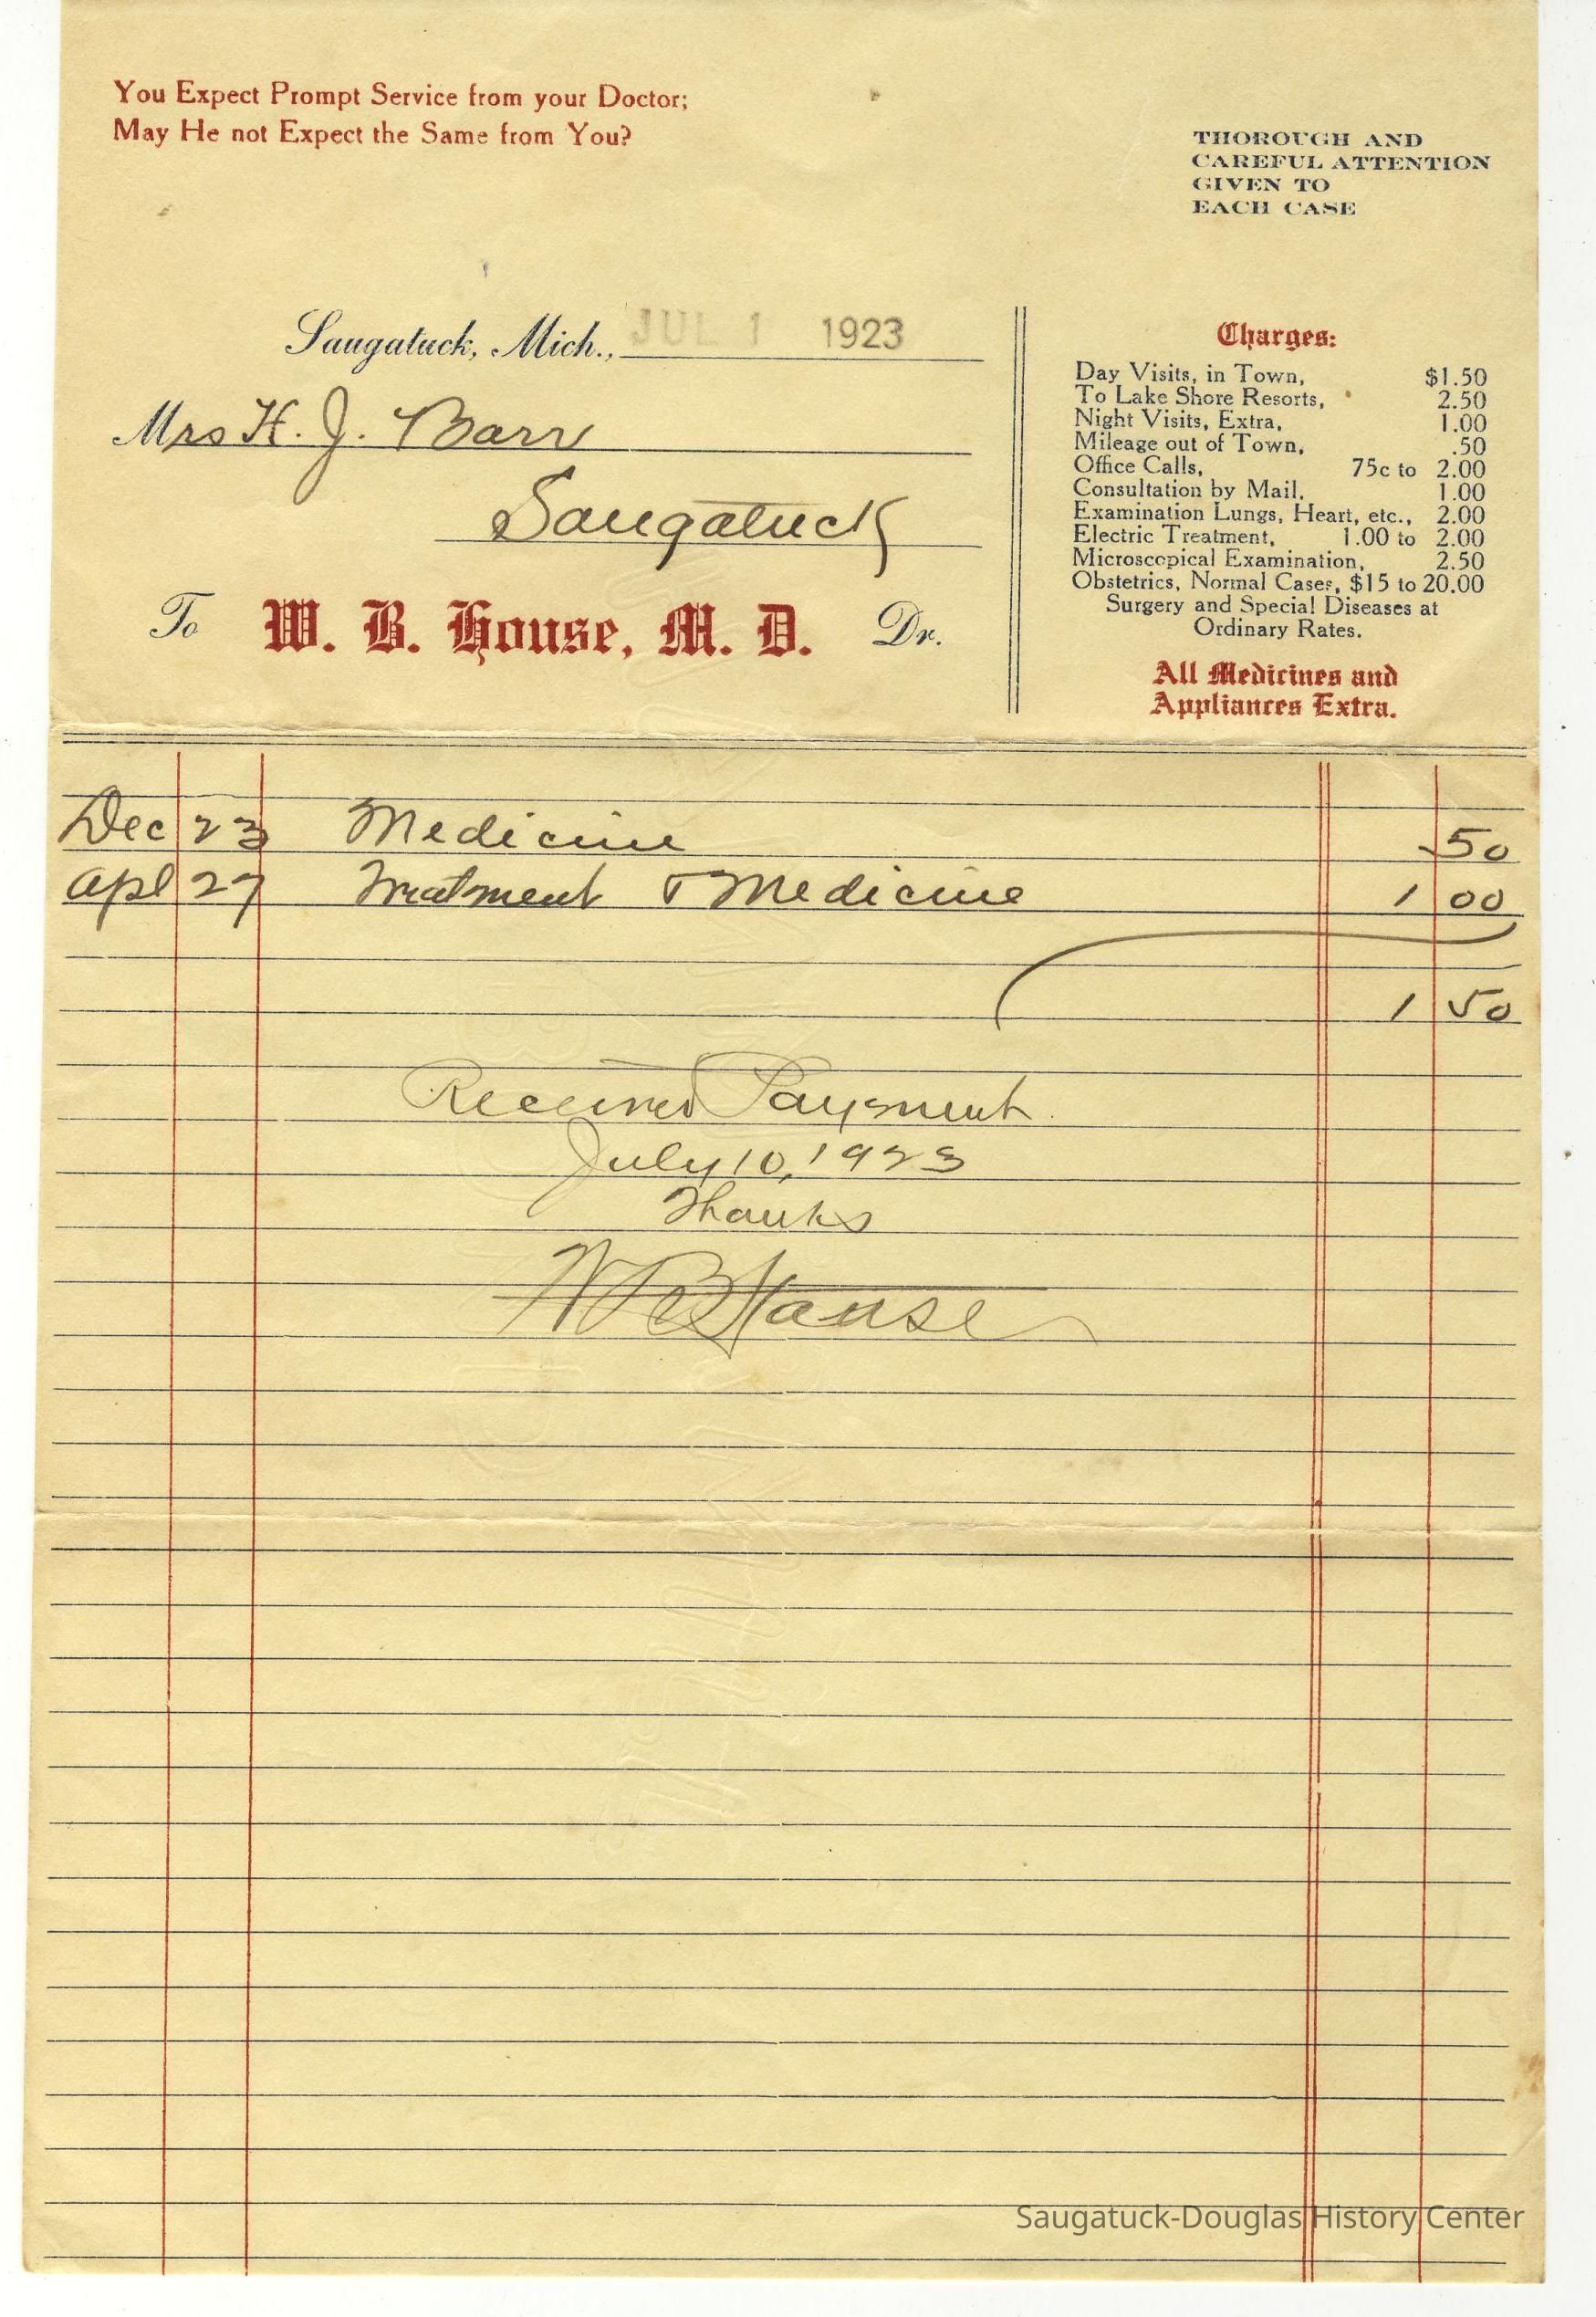 You Expect Prompt Service from your Doctor;
May He not Expect the Same from You?
THOROUGH AND
CAREFUL ATTENTION
GIVEN TO
EACH CASE
Saugatuck, Mich., JUL 1 1923
Mrs H. J. Barr
Saugatuck
To W. B. House, M. D. Dr.
Charges:
Day Visits, in Town, $1.50
To Lake Shore Resorts, 2.50
Night Visits, Extra, 1.00
Mileage out of Town, .50
Office Calls, 75c to 2.00
Consultation by Mail, 1.00
Examination Lungs, Heart, etc., 2.00
Electric Treatment, 1.00 to 2.00
Microscopical Examination, 2.50
Obstetrics, Normal Cases, $15 to 20.00
Surgery and Special Diseases at
Ordinary Rates.
All Medicines and
Appliances Extra.
Dec 23 Medicine .50
Apl 27 Treatment & Medicine 1 00
1 50
Received Payment.
July 10, 1923
Thanks
W B House
Saugatuck-Douglas History Center